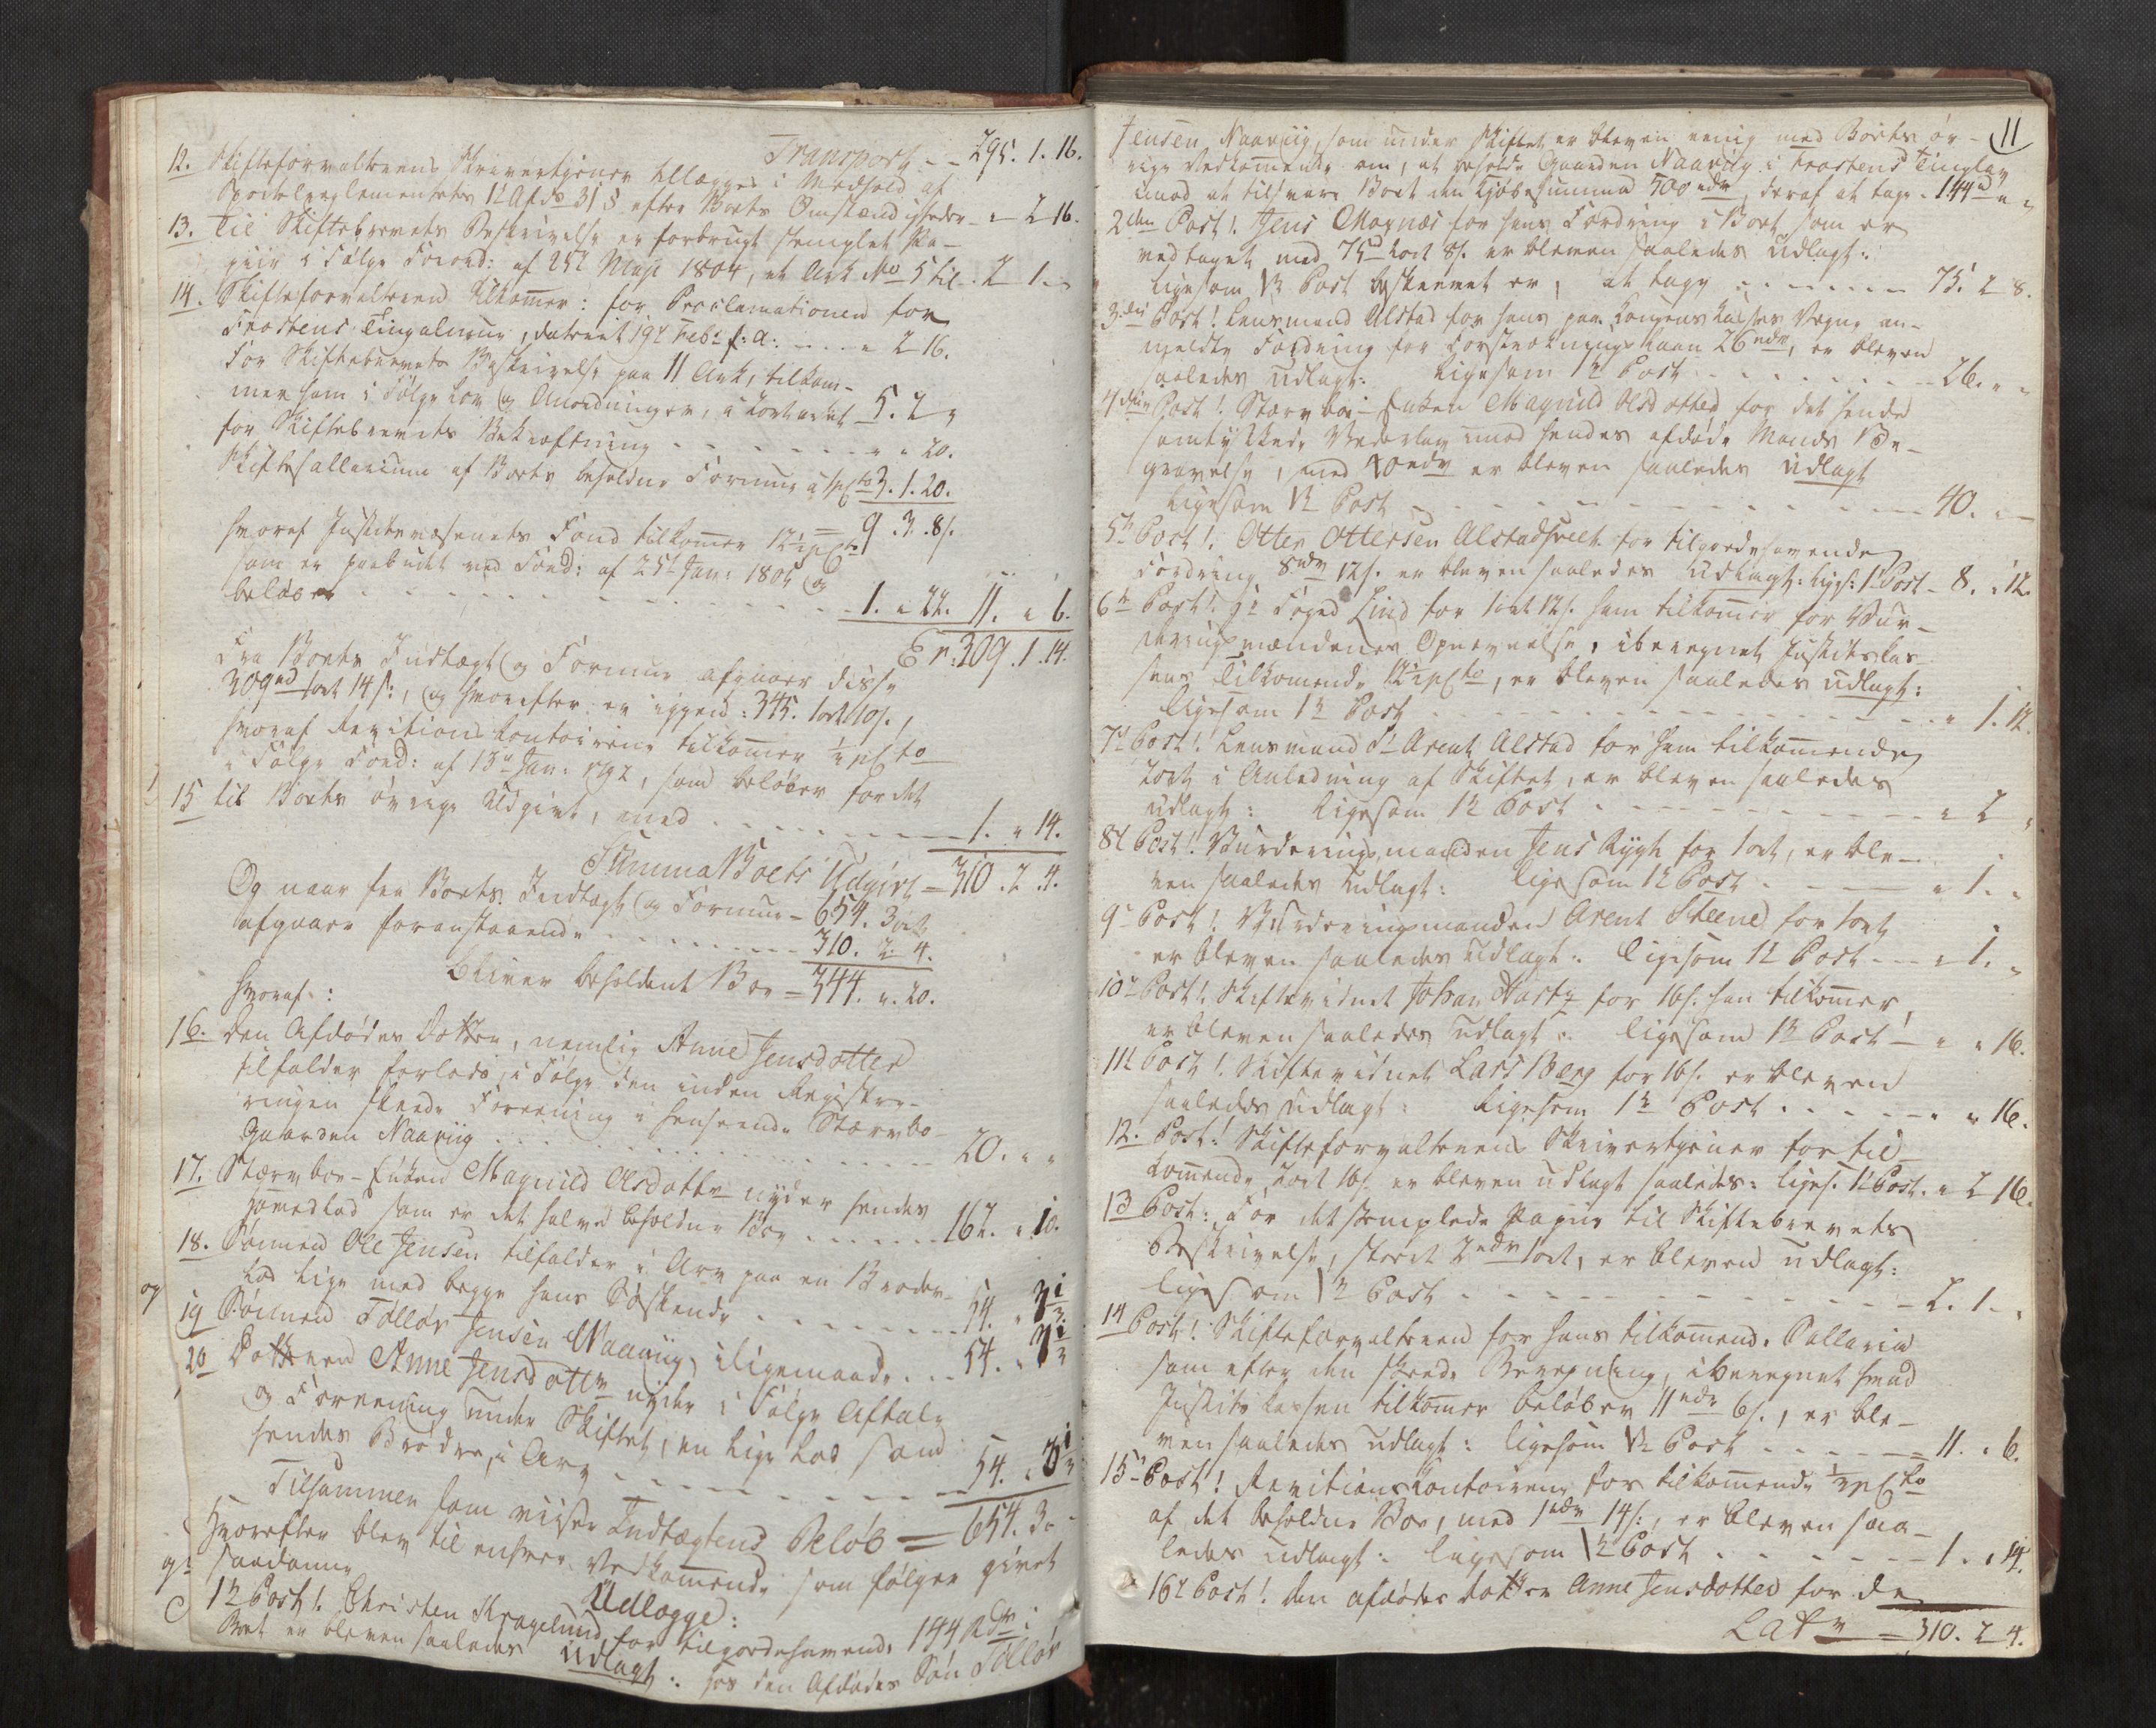 Transport - - 295. 1. 16.
12. Skifteforvalterens Skrivertjener tillægges i Medhold af
Sportelreglementets 1te Afds 31 § efter Boets Omstændigheder - " 2 16.
13. Til Skiftebrevets Beskrivelse er forbrugt stemplet Pa-
piir i Følge Forord: af 25de Maji 1804, et Ark No 5 til - 2 1. "
14. Skifteforvalteren tilkommer: for Proclamationen for
Frostens Tingalmue, dateret 19de Feb: f: a: - - - " 2 16.
For Skiftebrevets Beskrivelse paa 11 Ark, tilkom-
mer ham i Følge Lov og Anordninger, a 2ort arket 5. 2 "
for Skiftebrevets Bekræftning - - - - - - " " 20.
Skiftesallarium af Boets beholdne Formue a 1 pCto 3. 1. 20.
= 9. 3. 8/.
hvoraf Justitsvæsenets Fond tilkommer 12½ pCto
som er paabudet ved Forord: af 25de Jan: 1805 og
beløber - - - - - - - - 1. " 22. 11. " 6.
Er: 309. 1. 14.
Fra Boets Indtægt og Formue afgaaer disse
309rd 1ort 14 s:, og hvorefter er igjen: 345. 1ort 10/.,
hvoraf Revitions Contoirene tilkommer ½ pCto
i Følge Forord: af 13de Jan: 1792, som beløber for det
15 til Boets øvrige Udgivt, med - - - - - 1. " 14.
Summa Boets Udgivt = 310. 2. 4.
Og naar fra Boets Indtægt og Formue - 654. 3ort
afgaaer foranstaaende - - - - - 310. 2. 4.
Bliver beholdent Boe = 344. ". 20.
hvoraf:
16. den Afdødes Datter, nemlig Anne Jensdotter
tilfalder forlods, i Følge den inden Registre-
ringen skeede Forening i henseende Stervbo-
Gaarden Naavig - - - - - - 20. " "
17. Stervboe-Enken Magnild Olsdotter nyder hendes
Hovedlod som er det halve beholdne Boe - - - 162. " 10.
18. Sønnen Ole Jensen tilfalder i Arv paa en Broder-
Lod lige med begge hans Søskende - - - 54. "
19 Sønnen Tollov Jensen Naavig ligemaade. - - 54. "
20 Datteren Anne Jensdotter nyder i Følge Aftale
og Forening under Skiftet, en lige Lod som
hendes Brødre, i Arv - - - - - 54. "
Tilsammen som viiser Indtægtens Beløb = 654. 3. "
Hvorefter blev til enhver Vedkommende som følger givet
saadanne
Udlægge:
1te Post! Christen Kragelund for tilgodehavende 144 Rdr i
Boet er bleven saaledes Udlagt: hos den Afdødes Søn Tollov
11
Jensen Naavig, som under Skiftet er bleven eenig med Boets øv-
rige Vedkommende om, at beholde Gaarden Naavig i Frostens Tinglag
imod at tilsvare Boet den Kjøbesumma 500 rdr, deraf at tage - 144 " "
2den Post! Jens Mognæs for hans Fordring i Boet som er
vedtaget med 75rd 2ort 8/. er bleven saaledes Udlagt:
ligesom 1te Post beskrevet er, at tage - - - - - 75. 2 8.
3die Post! Lensmand Alstad for hans paa Kongens Kasses Vegne an-
meldte Fordring for Forstrækningslaan 26 rdr, er bleven
saaledes Udlagt: Ligesom 1te Post - - - - - - 26. " "
4de Post! Stervboe-Enken Magnild Olsdotter for det hende
samtykkede Vederlag imod hendes afdøde Mands Be-
gravelse, med 40 rdr er bleven saaledes Udlagt
Ligesom 1te Post - - - - - - - - - 40. " "
5te Post! Otter Ottersen Alstad for tilgodehavende
Fordring 8 rdr 12/. er bleven saaledes Udlagt: lige: 1te Post - 8. " 12.
6te Post! Hr Foged Lind for 1ort 12/. ham tilkommer for Vur-
deringsmændenes Opnævnelse, iberegnet Justitskas-
sens Tilkommende 12½ pCto, er bleven saaledes Udlagt:
ligesom 1te Post - - - - - - - - " 1. 12.
7de Post! Lensmand Sr Arent Alstad for ham tilkommende
2ort i Anledning af Skiftet, er bleven saaledes
Udlagt: Ligesom 1te Post - - - - - - " 2 "
8de Post! Vurderingsmanden Jens Rygh for 1ort, er ble-
ven saaledes Udlagt: ligesom 1te Post - - - " 1. "
9de Post! Vurderingsmanden Arent Steene for 1ort
er bleven saaledes Udlagt: ligesom 1te Post - - - " 1. "
10de Post! Skiftevidnet Johan Hartz for 16/. ham tilkommer,
er bleven saaledes Udlagt: ligesom 1te Post - " " 16.
11te Post! Skiftevidnet Lars Berg for 16/. er bleven
saaledes Udlagt: Ligesom 1te Post - - - - " " 16.
12. Post! Skifteforvalterens Skrivertjener for til-
kommende 2ort 16/. er bleven udlagt saaledes: liges. 1te Post. " 2 16.
13 Post: For det stemplede Papiir til Skiftebrevets
Beskrivelse, stoert 2 rdr 1ort, er bleven udlagt:
ligesom 1te Post - - - - - - - - - 2. 1. "
14 Post! Skifteforvalteren for hans tilkommende Sallaria
som efter den skeede Beregning, iberegnet hvad
Justitskassen tilkommer beløber 11 rdr 6/., er ble-
ven saaledes Udlagt: ligesom 1te Post - - - - 11. " 6.
15de Post! Revitions Contoirene for tilkommende ½ pCto
af det beholdne Boe, med 1 rdr 14/:, er bleven saa-
ledes Udlagt: ligesom 1te Post - - - - - 1. " 14.
16de Post! den afdødes Datter Anne Jensdotter for de
Latr = 310. 2 4.